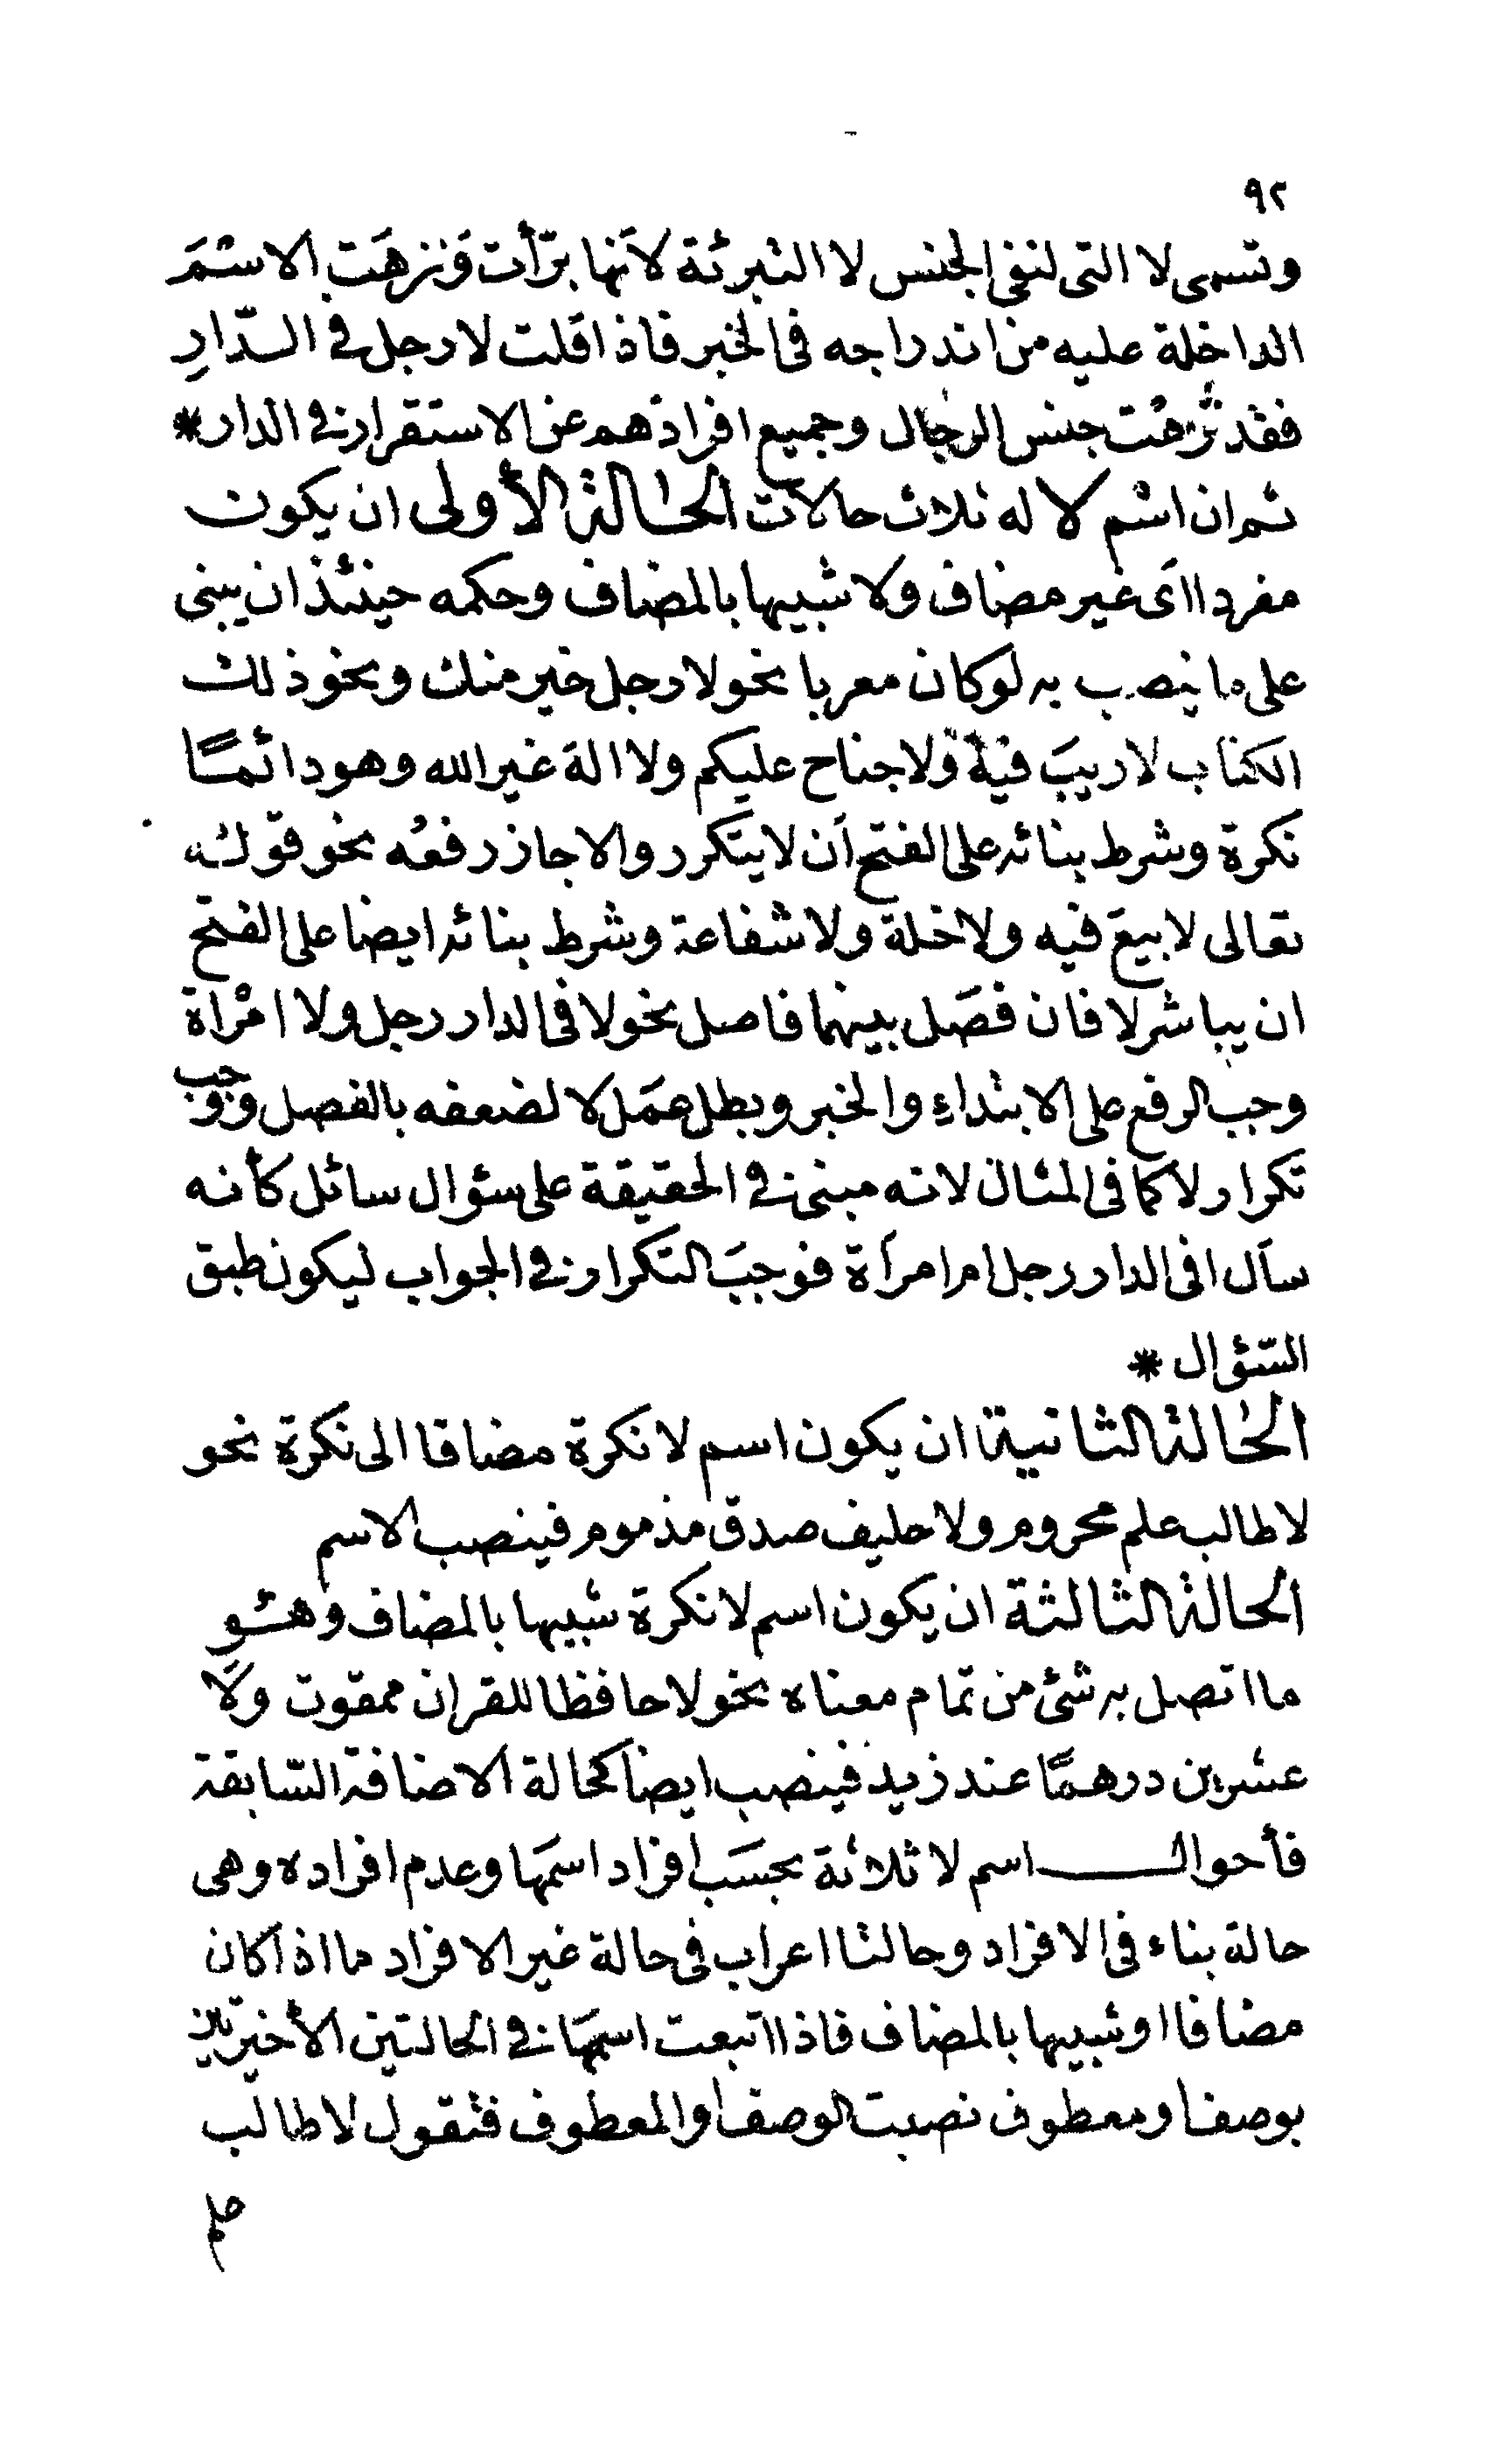 ٩٢
وتسمى لا التى لنفى الجنس لا التبرئة لأنها برّأت ونزهَت الاسْمَ
الداخلة عليه من اندراجه فى الخبر فاذا قلت لا رجل فى الدّارِ
فقد نزّهْت جنس الرجال وجميع افرادهم عن الاستقرار فى الدار *
ثم ان اسْم لا له ثلاث حالات الحالة الأولى ان يكون
مفردا اى غير مضاف ولا شبيها بالمضاف وحكمه حينئذ ان يبنى
على ما ينصب به لو كان معربا نحو لا رجل خير منك ونحو ذلك
الكتاب لا ريبَ فيه ولا جناح عليكم ولا الهَ غير الله وهو دائمًا
نكرة وشرط بنائه على الفتح أن لا يتكرر والا جاز رفعُه نحو قوله
تعالى لا بيعَ فيه ولا خلة ولا شفاعة وشرط بنائه ايضا على الفتح
ان يباشر لا فان فصَل بينهما فاصل نحو لا فى الدار رجل ولا امْراة
وجب الرفع على الابتداء والخبر وبطل عمَل لا لضعفه بالفصل ووجب
تكرار لا كما فى المثال لانه مبنى فى الحقيقة على سؤال سائل كأنه
سأل افى الدار رجل ام امرأة فوجبَ التكرار فى الجواب ليكون طبق
السّؤال *
الحالة الثانية ان يكون اسم لا نكرة مضافا الى نكرة نحو
لا طالب علم محروم ولا حليف صدق مذموم فينصب الاسم
الحالة الثالثة ان يكون اسم لا نكرة شبيها بالمضاف وهو
ما اتصل به شئ من تمام معناه نحو لا حافظا للقران ممقوت ولا
عشرين درهمًا عند زيد فينصب ايضا كحالة الاضافة السّابقة
فأحوال اسم لا ثلاثة بحسَب افراد اسمَها وعدم افراده وهى
حالة بناء فى الافراد وحالتا اعراب فى حالة غير الافراد ما اذا كان
مضافا او شبيها بالمضاف فاذا اتبعت اسمَها فى الحالتين الأخيرتين
بوصف او معطوف نصبت الوصف او المعطوف فتقول لا طالب
علم